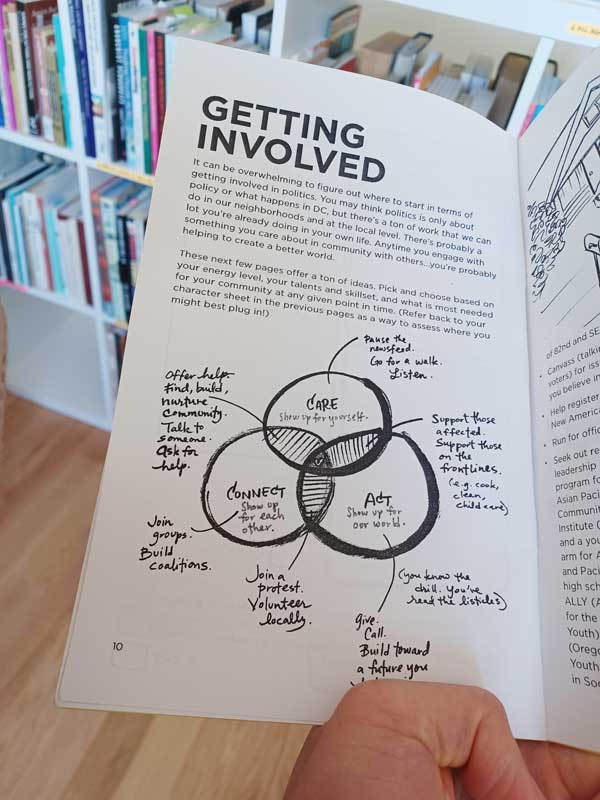 GETTING
INVOLVED
It can be overwhelming to figure out where to start in terms of
getting involved in politics. You may think politics is only about
policy or what happens in DC, but there's a ton of work that we can
do in our neighborhoods and at the local level. There's probably a
lot you're already doing in your own life. Anytime you engage with
something you care about in community with others...you're probably
helping to create a better world.
These next few pages offer a ton of ideas. Pick and choose based on
your energy level, your talents and skillset, and what is most needed
for your community at any given point in time. (Refer back to your
character sheet in the previous pages as a way to assess where you
might best plug in!)
Pause the
newsfeed.
Go for a walk.
Listen.
Offer help.
Find, build,
nurture
community.
Talk to
someone.
Ask for
help.
CARE
Show up for yourself.
Support those
affected.
Support those
on the
frontlines.
(e.g. cook,
clean,
childcare)
CONNECT
Show up
for each
other.
ACT
Show up for
our world.
Join
groups.
Build
coalitions.
Join a
protest.
Volunteer
locally.
(you know the
drill. You've
read the listicles)
Give.
Call.
Build toward
a future you
10
of 82nd and SE
• Canvass (talki
voters) for iss
you believe in
• Help register
New America
• Run for offic
• Seek out re
leadership
program fo
Asian Pacif
Communit
Institute (
and a you
arm for A
and Pacif
high scho
ALLY (A
for the
Youth)
(Orego
Youth
in Soc